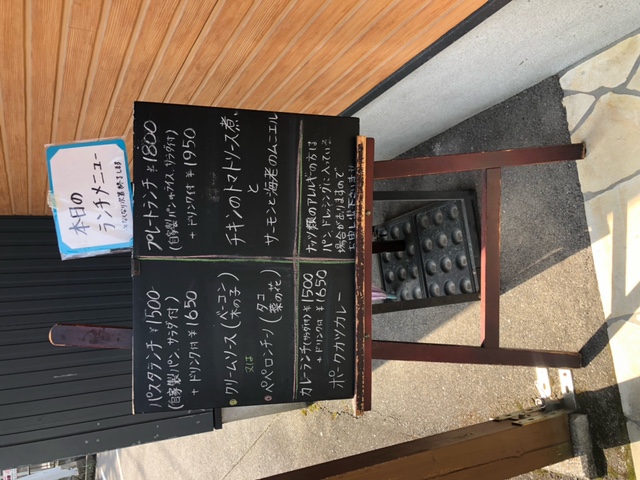 本日の
ランチメニュー
※なくなり次第終了します。
パスタランチ ¥1500
(自家製パン、サラダ付)
+ドリンク付 ¥1650
クリームソース(ベーコン
木の子)
又は
ペペロンチノ(タコ
菜の花)
カレーランチ(サラダ付) ¥1500
+ドリンク付 ¥1650
ポークカツカレー
プレートランチ ¥1800
(自家製パン or ライス、サラダ付)
+ドリンク付 ¥1950
チキンのトマトソース煮、
と
サーモンと海老のムニエル
ナッツ類のアレルギーの方は
パン、ドレッシングに入っている
場合がありますので